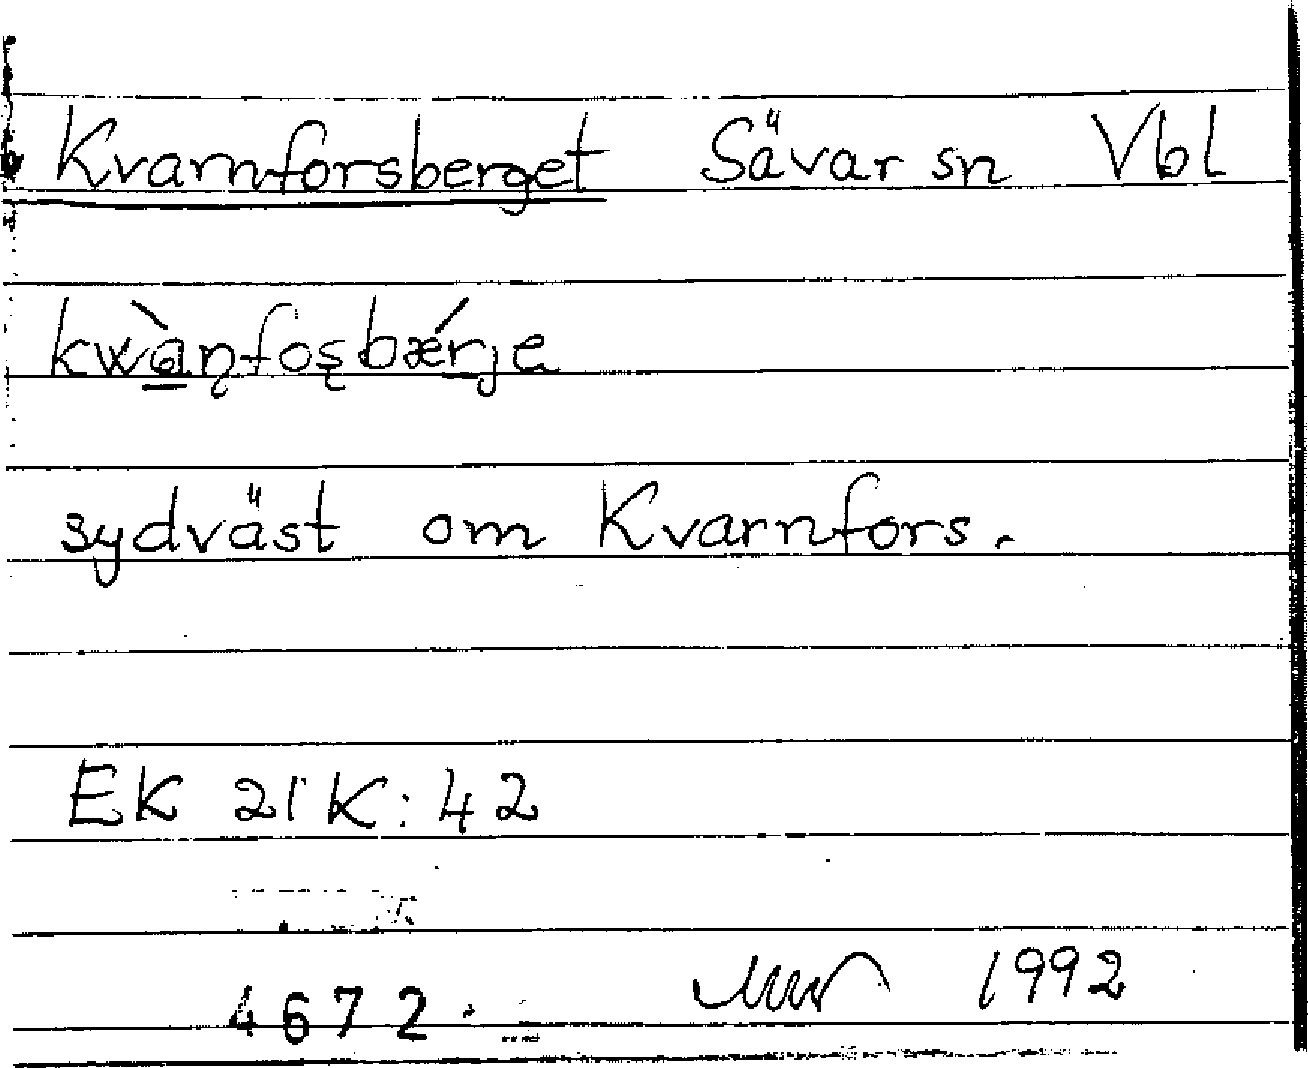 Kvarnforsberget Sävar sn Vbl
kwà̱ɳfoʂbǽrje
sydväst om Kvarnfors.
EK 21K:42
4672. 1992